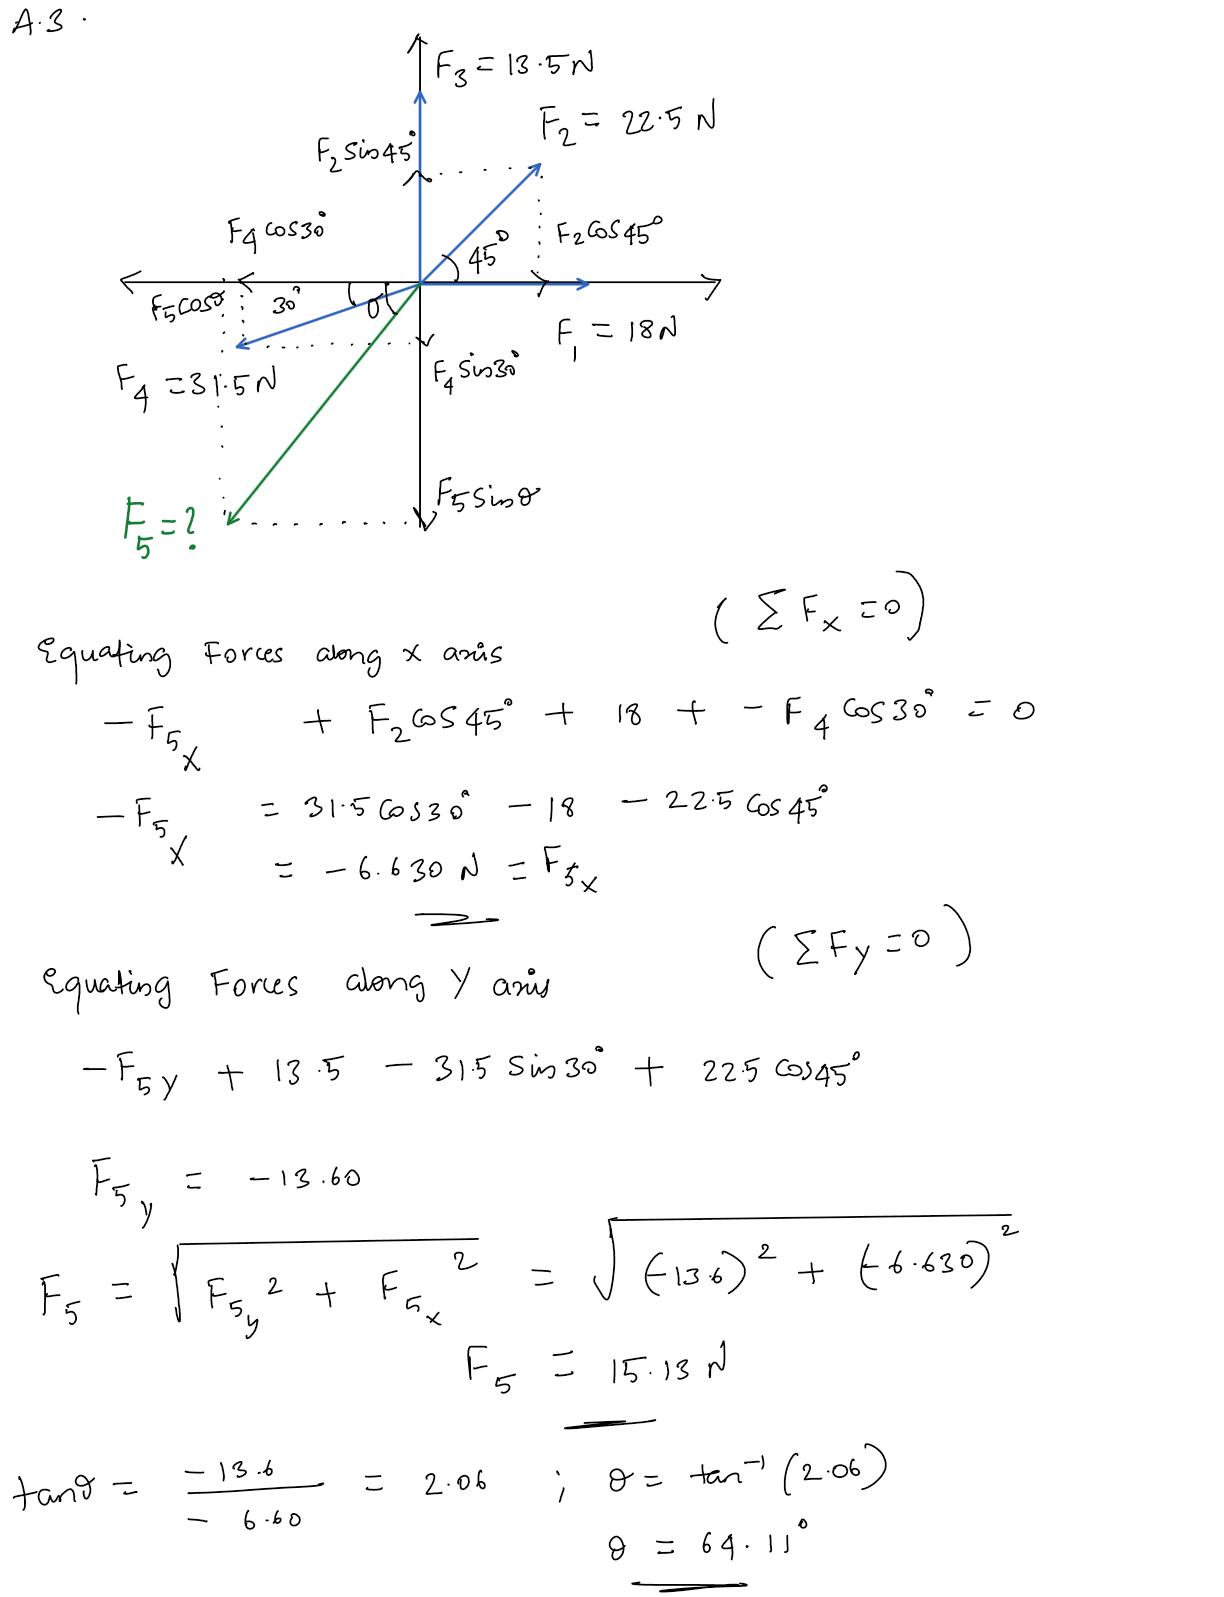 A.3.
F₃ = 13.5N
F₂ = 22.5 N
F₂ Sin45°
F₄ cos30°
F₂ cos45°
45°
F₅ cosθ
30°
θ
F₁ = 18N
F₄ = 31.5N
F₄ Sin30°
F₅ Sinθ
F₅ = ?
( Σ Fₓ = 0 )
Equating Forces along x axis
- F₅ₓ + F₂ cos45° + 18 + - F₄ cos30° = 0
- F₅ₓ = 31.5 cos30° - 18 - 22.5 cos45°
= -6.630 N = F₅ₓ
( Σ Fy = 0 )
Equating Forces along Y axis
- F₅y + 13.5 - 31.5 Sin30° + 22.5 cos45°
F₅y = -13.60
F₅ = √(F₅y² + F₅ₓ²) = √((-13.6)² + (-6.630)²)
F₅ = 15.13 N
tanθ = -13.6 / - 6.60 = 2.06 ; θ = tan⁻¹ (2.06)
θ = 64.11°